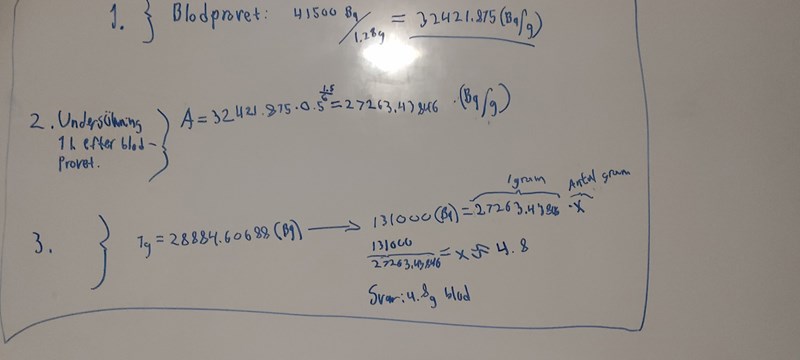 1. } Blodprovet: 41500 Bq / 1.28g = 32421.875 (Bq/g)
2. Undersökning
1h efter blod-
Provet.
A = 32421.875 · 0.5^(1.5/6) = 27263.43846 · (Bq/g)
1gram Antal gram
3. } 1g = 28884.60688 (Bq) → 131000 (Bq) = 27263.43846 · X
131000 / 27263.43846 = X ≈ 4.8
Svar: 4.8g blod